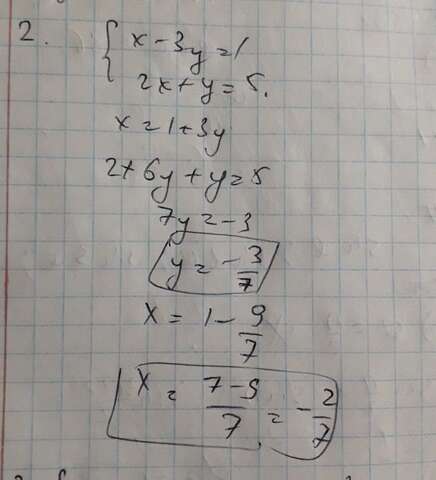 2. { x - 3y = 1
2x + y = 5.
x = 1 + 3y
2 + 6y + y = 5
7y = -3
y = -3/7
x = 1 - 9/7
x = (7-9)/7 = -2/7